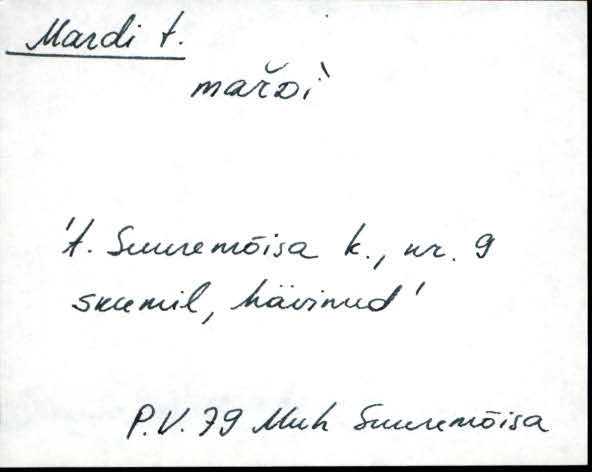 Mardi t.
mařᴅì
't. Suuremõisa k., nr. 9
skeemil, hävinud'
P.V. 79 Muh Suuremõisa